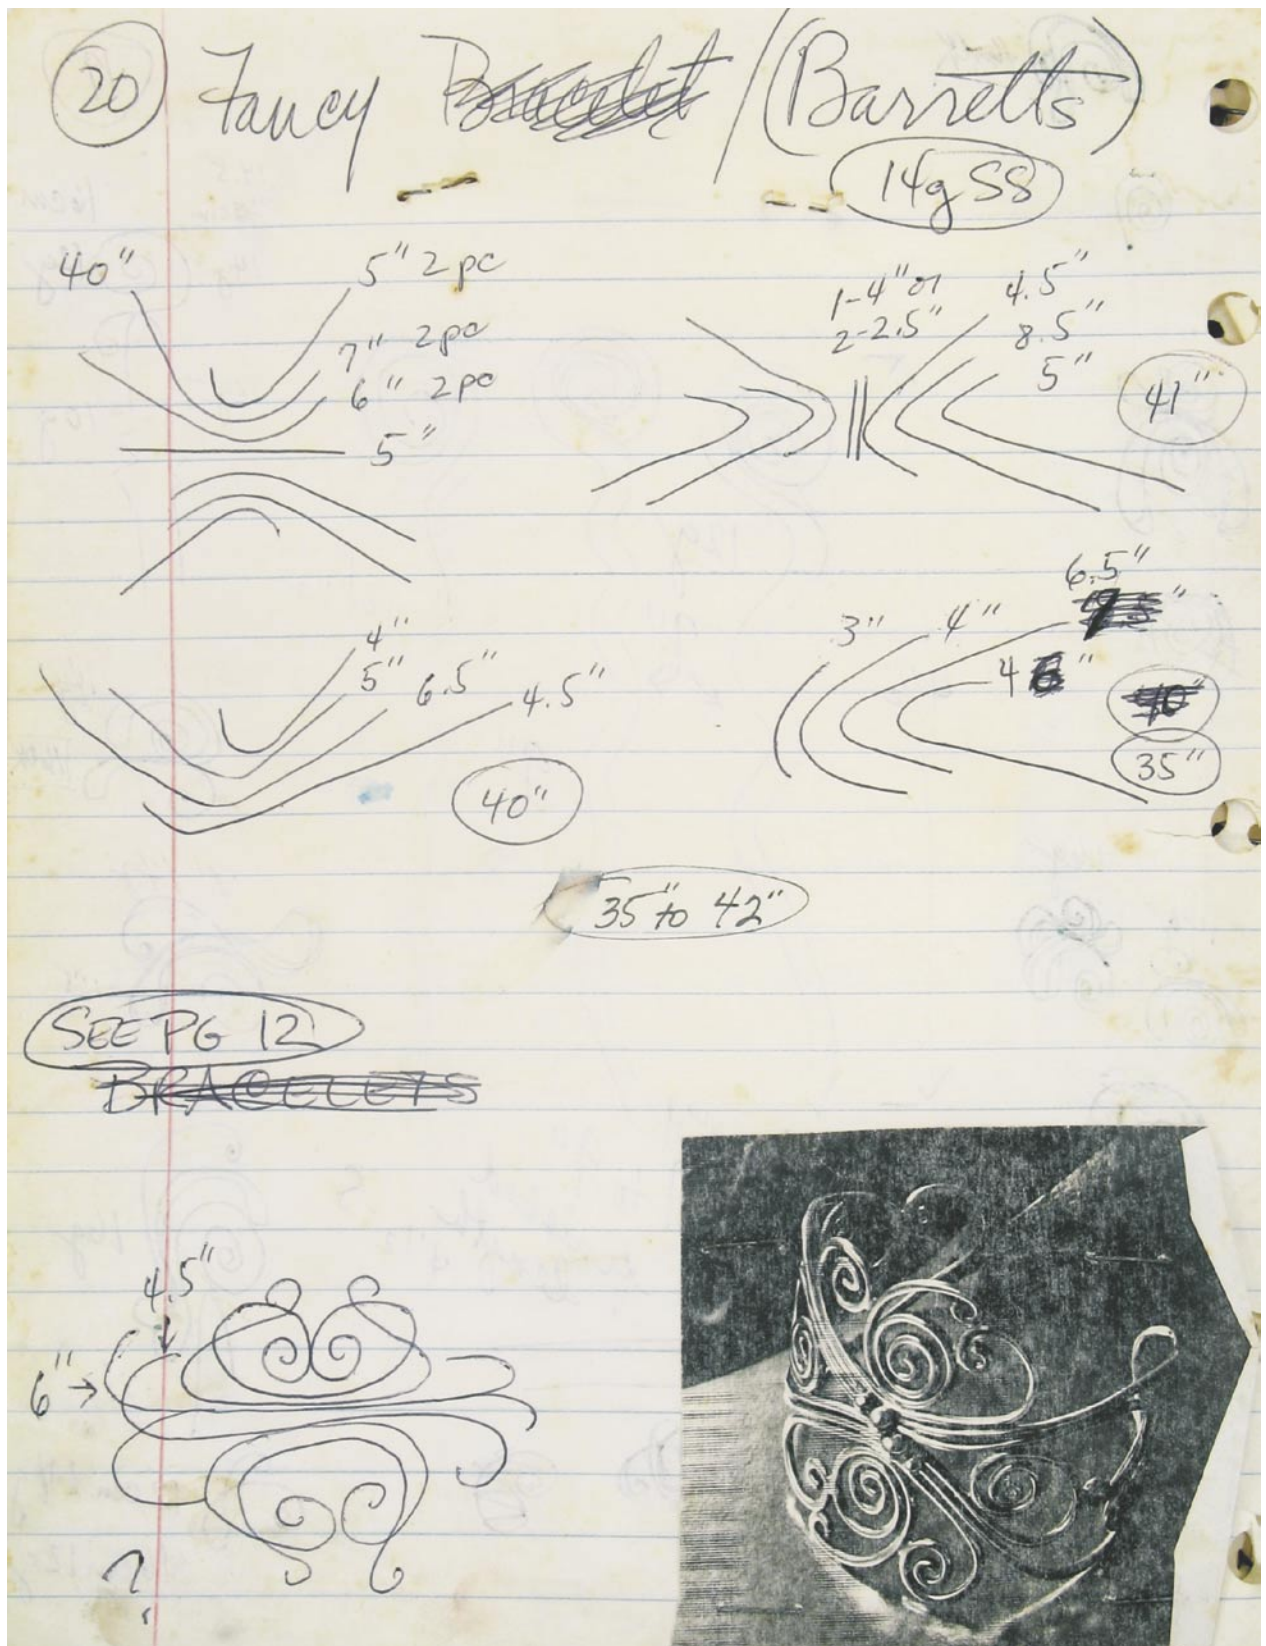 20 Fancy Bracelet / (Barretts)
14g SS
40" 5" 2 pc
7" 2 pc
6" 2 pc
5"
1-4" or 4.5"
2-2.5" 8.5"
5"
41"
4"
5" 6.5" 4.5"
40"
6.5"
3" 4"
4 "
40"
35"
35" to 42"
SEE PG 12
BRACELETS
4.5"
6"
?